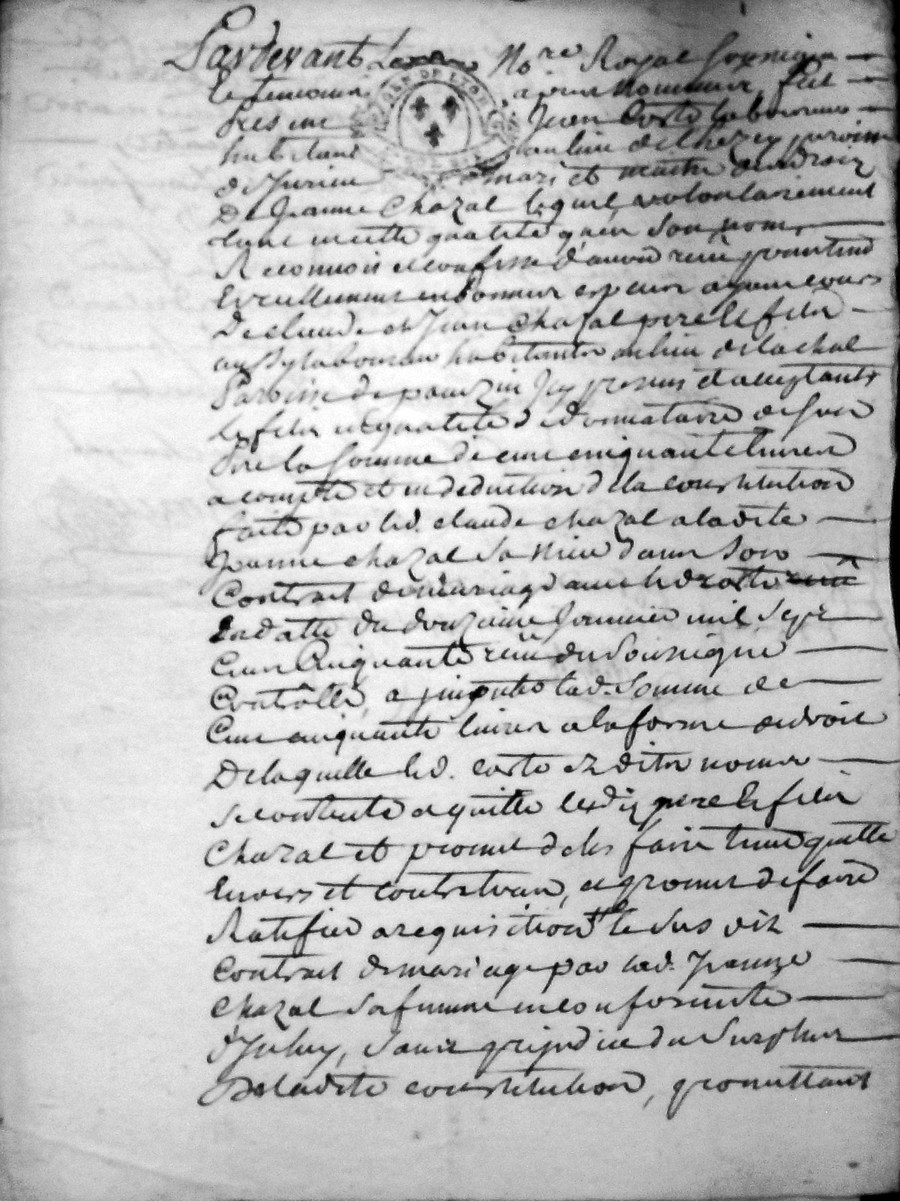 Pardevant Le Nore Royal Soussigné
et temoins apres nommés, fut
Present Jean Coste laboureur
habitant au lieu de paroisse
de Jurieu mari et maitre des droits
De Jeanne Chazal lequel volontairement
tant en cette qualité qu'en son nom
Reconnoit et confesse d'avoir reçu
Et reellement en bonnes especes ayant cours
De claude et Jean Chazal pere et fils
aussy laboureurs habitants au lieu de lachal
Paroisse de icy presens et acceptants
le fils en qualité de donnataire de son
Pere la Somme de cent cinquante livres
a compte et en deduction de la constitution
faite par led. claude chazal a ladite
Jeanne chazal sa niece dans son
Contrat de mariage avec led. Coste
En datte du douzieme mil Sept
Cent Cinquante reçu du Soussigné
Contôllé, a imputer lad. Somme de
Cent cinquante livres a la forme du droit
De laquelle led. coste ez dits noms
se contente et quitte lesd. pere et fils
Chazal et promet de les faire tenir quitte
Envers et contre tous, et promet de faire
Ratifier a requisition le susdit
Contrat de mariage par lad. Jeanne
Chazal sa femme en conformité
d'Iceluy, sans prejudice du Surplus
De ladite constitution, promettant